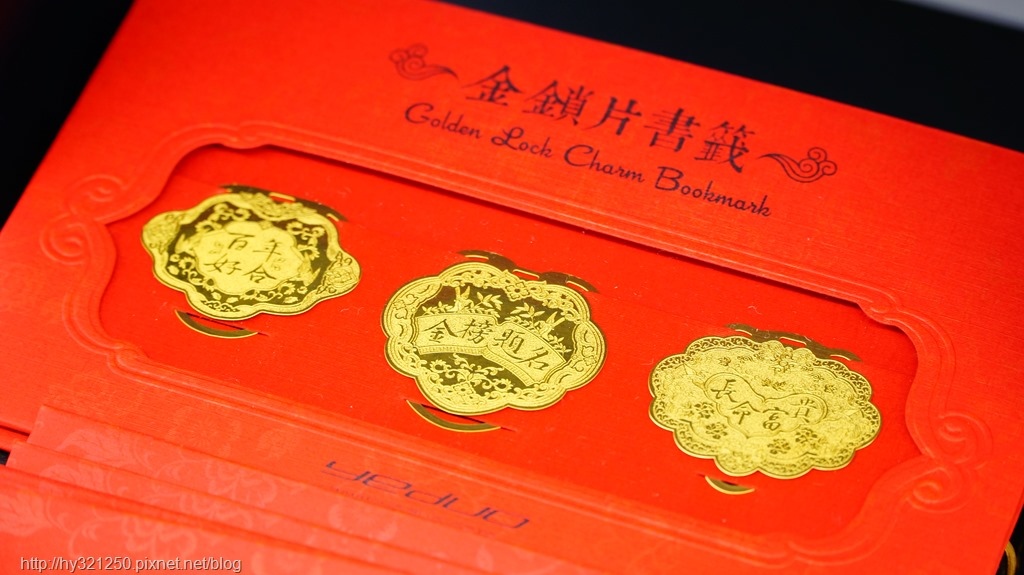 金鎖片書籤
Golden Lock Charm Bookmark
百年
好合
金榜題名
長命富貴
yeduo
http://hy321250.pixnet.net/blog